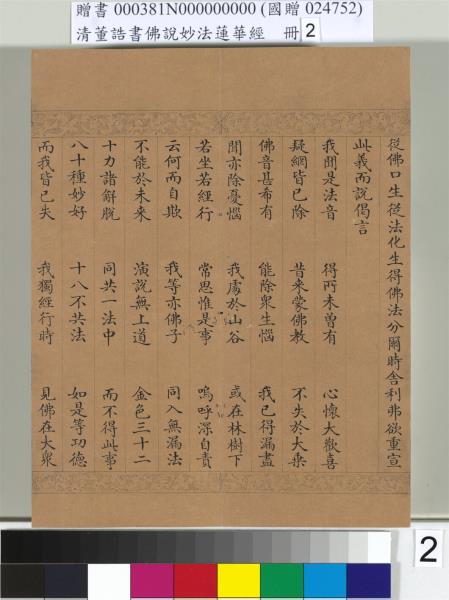 贈書 000381N000000000 (國贈 024752)
清董誥書佛說妙法蓮華經 冊 2
從佛口生從法化生得佛法分爾時舍利弗欲重宣
此義而說偈言
我聞是法音 得所未曾有 心懷大歡喜
疑網皆已除 昔來蒙佛教 不失於大乘
佛音甚希有 能除眾生惱 我已得漏盡
聞亦除憂惱 我處於山谷 或在林樹下
若坐若經行 常思惟是事 嗚呼深自責
云何而自欺 我等亦佛子 同入無漏法
不能於未來 演說無上道 金色三十二
十力諸解脫 同共一法中 而不得此事
八十種妙好 十八不共法 如是等功德
而我皆已失 我獨經行時 見佛在大眾
2